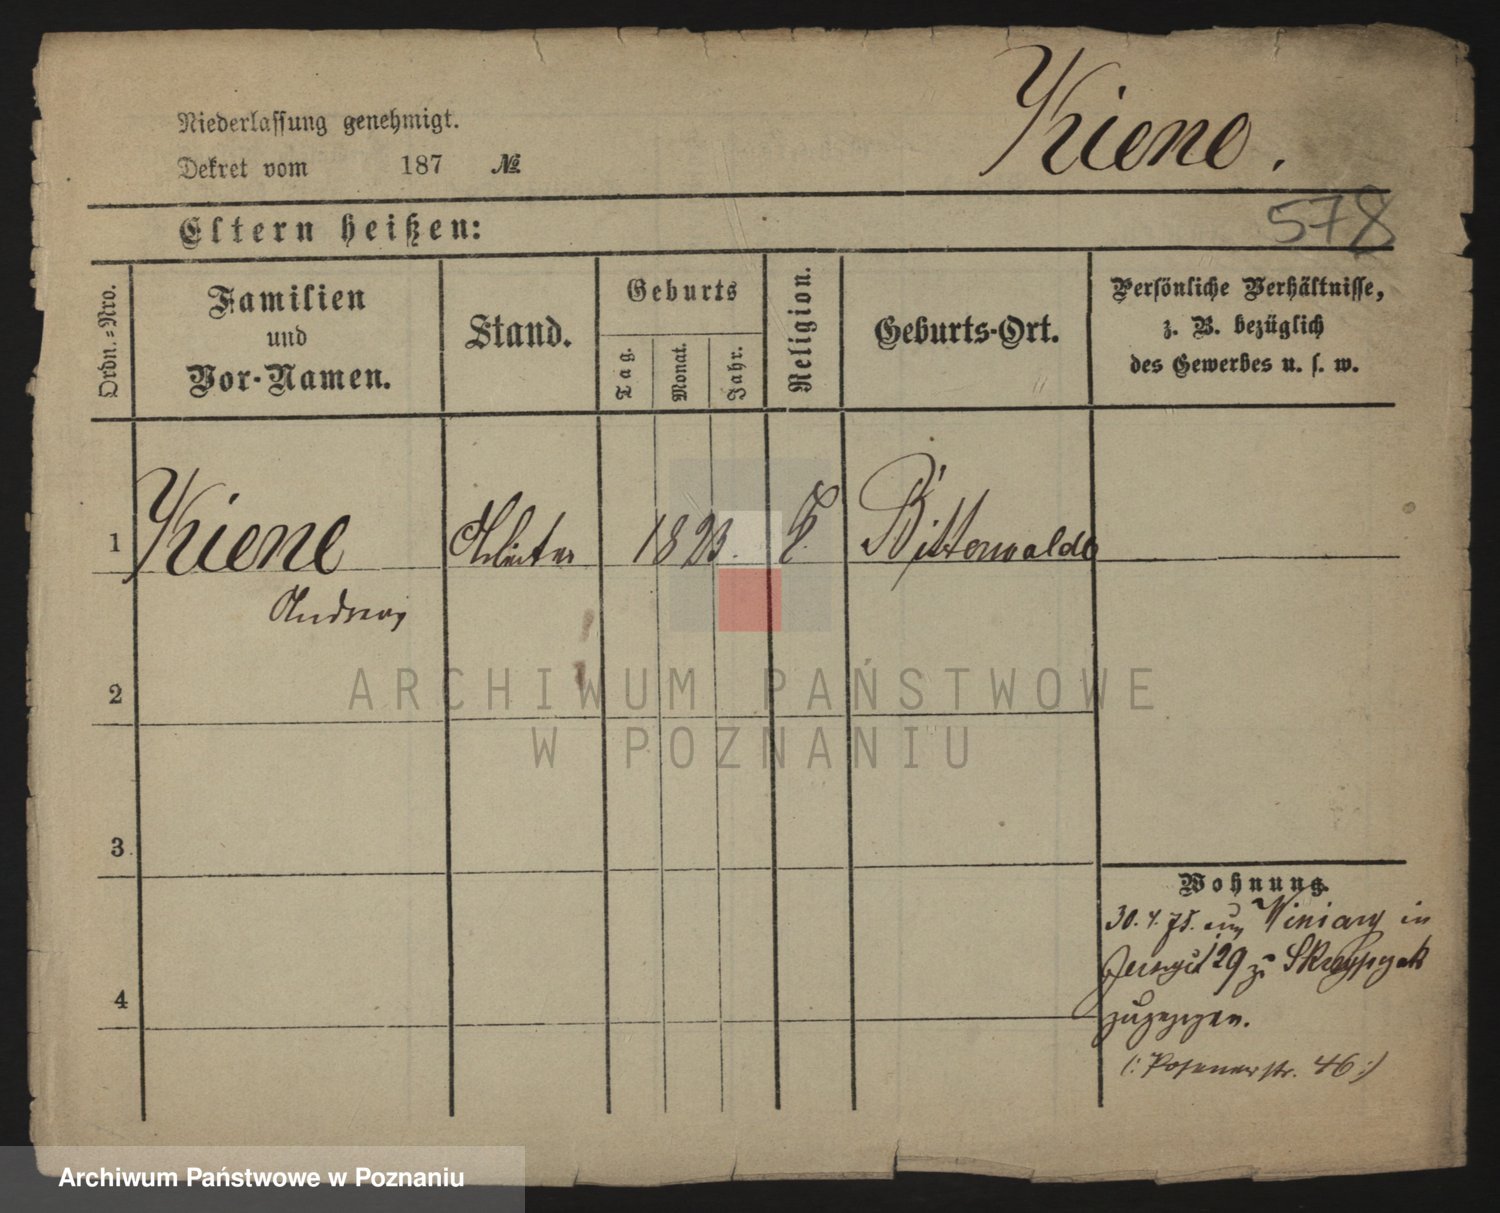 Kiene.
Niederlassung genehmigt.
Dekret vom 187 №
578
Eltern heißen:
Ordn.-Nro.
Familien
und
Vor-Namen.
Stand.
Geburts
Tag.
Monat.
Jahr.
Religion.
Geburts-Ort.
Persönliche Verhältnisse,
z. B. bezüglich
des Gewerbes u. s. w.
1 Kiene Arbeiter 1823. E. Bitterwalde
Andreas
2
3
4
Wohnung.
30. 4. 75. aus Winiary in
Jersyce 29 zu
zugezogen.
(: Posenerstr. 46 :)
ARCHIWUM PAŃSTWOWE
W POZNANIU
Archiwum Państwowe w Poznaniu